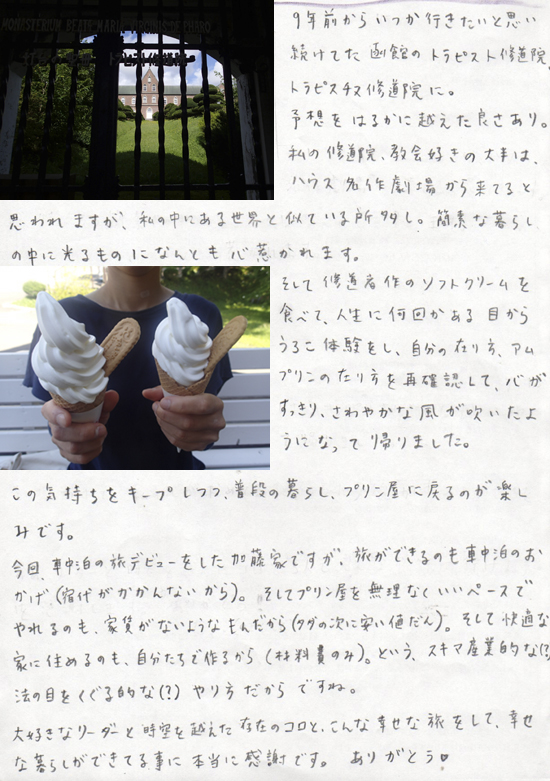 MONASTERIUM BEATAE MARIAE VIRGINIS DE PHARO
9年前からいつか行きたいと思い
続けてた函館のトラピスト修道院、
トラピスチヌ修道院に。
予想をはるかに越えた良さあり。
私の修道院、教会好きの大半は、
ハウス名作劇場から来てると
思われますが、私の中にある世界と似ている所多し。簡素な暮らし
の中に光るものになんとも心惹かれます。
そして修道者作のソフトクリームを
食べて、人生に何回かある目から
うろこ体験をし、自分の在り方、アム
プリンの在り方を再確認して、心が
すっきり、さわやかな風が吹いたよ
うになって帰りました。
この気持ちをキープしつつ、普段の暮らし、プリン屋に戻るのが楽し
みです。
今回、車中泊の旅デビューをした加藤家ですが、旅ができるのも車中泊のお
かげ(宿代がかかんないから)。そしてプリン屋を無理なくいいペースで
やれるのも、家賃がないようなもんだから(タダの次に安い値だん)。そして快適な
家に住めるのも、自分たちで作るから(材料費のみ)。という、スキマ産業的な(?)
法の目をくぐる的な(?)やり方だからですね。
大好きなリーダーと時空を越えた存在のコロと、こんな幸せな旅をして、幸せ
な暮らしができてる事に本当に感謝です。ありがとう♥